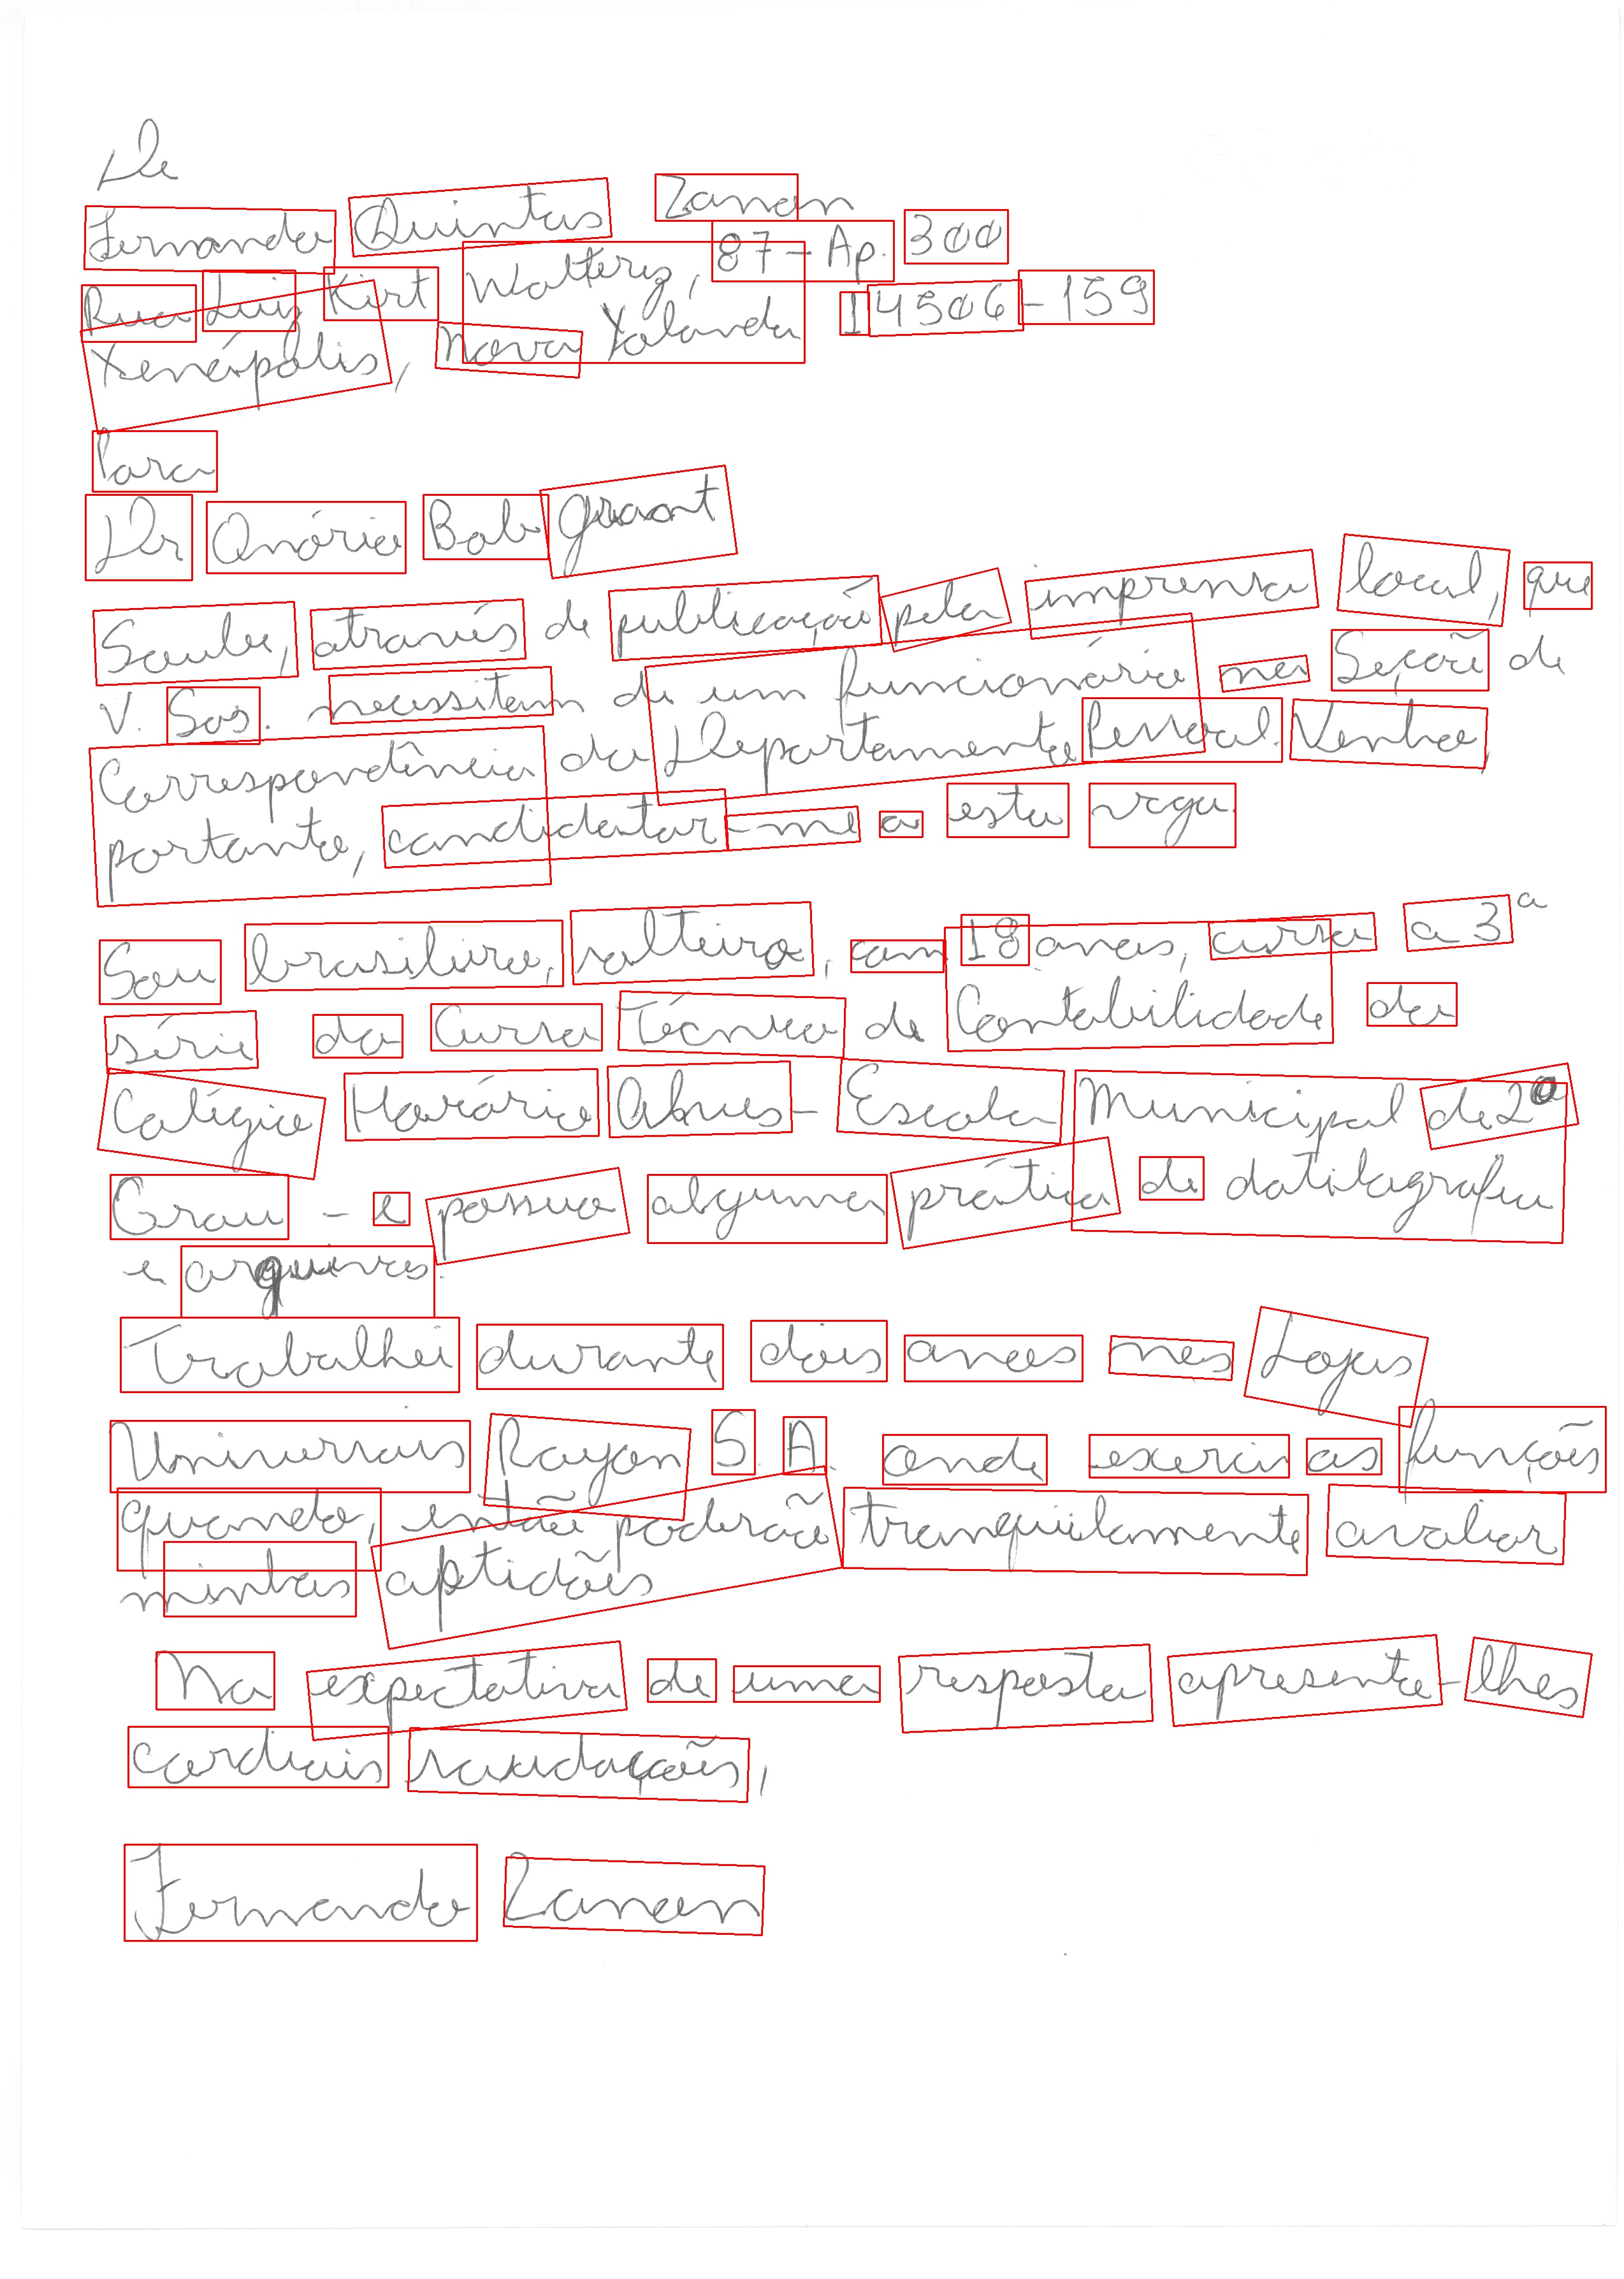 De
Fernando Quintas Zanon
Rua Luiz Kirt Walterz, 87 - Ap. 300
Xenérpolis, Nova Yolanda 14506-159
Para
Dr Onório Bob Graont
Soube, através de publicação pela imprensa local, que
V. Sas. necessitam de um funcionário na Seção de
Correspondência do Departamento Pessoal. Venho,
portanto, candidatar-me a esta vaga.
Sou brasileiro, solteiro, com 18 anos, curso a 3ª
série do Curso Técnico de Contabilidade do
Colégio Horário Alves - Escola Municipal de 2º
Grau - e possuo alguma prática de datilografia
e arquivos.
Trabalhei durante dois anos nas Lojas
Universais Rayon S.A. onde exerci as funções
quando, então poderão tranquilamente avaliar
minhas aptidões
Na expectativa de uma resposta apresento-lhes
cordiais saudações,
Fernando Zanon